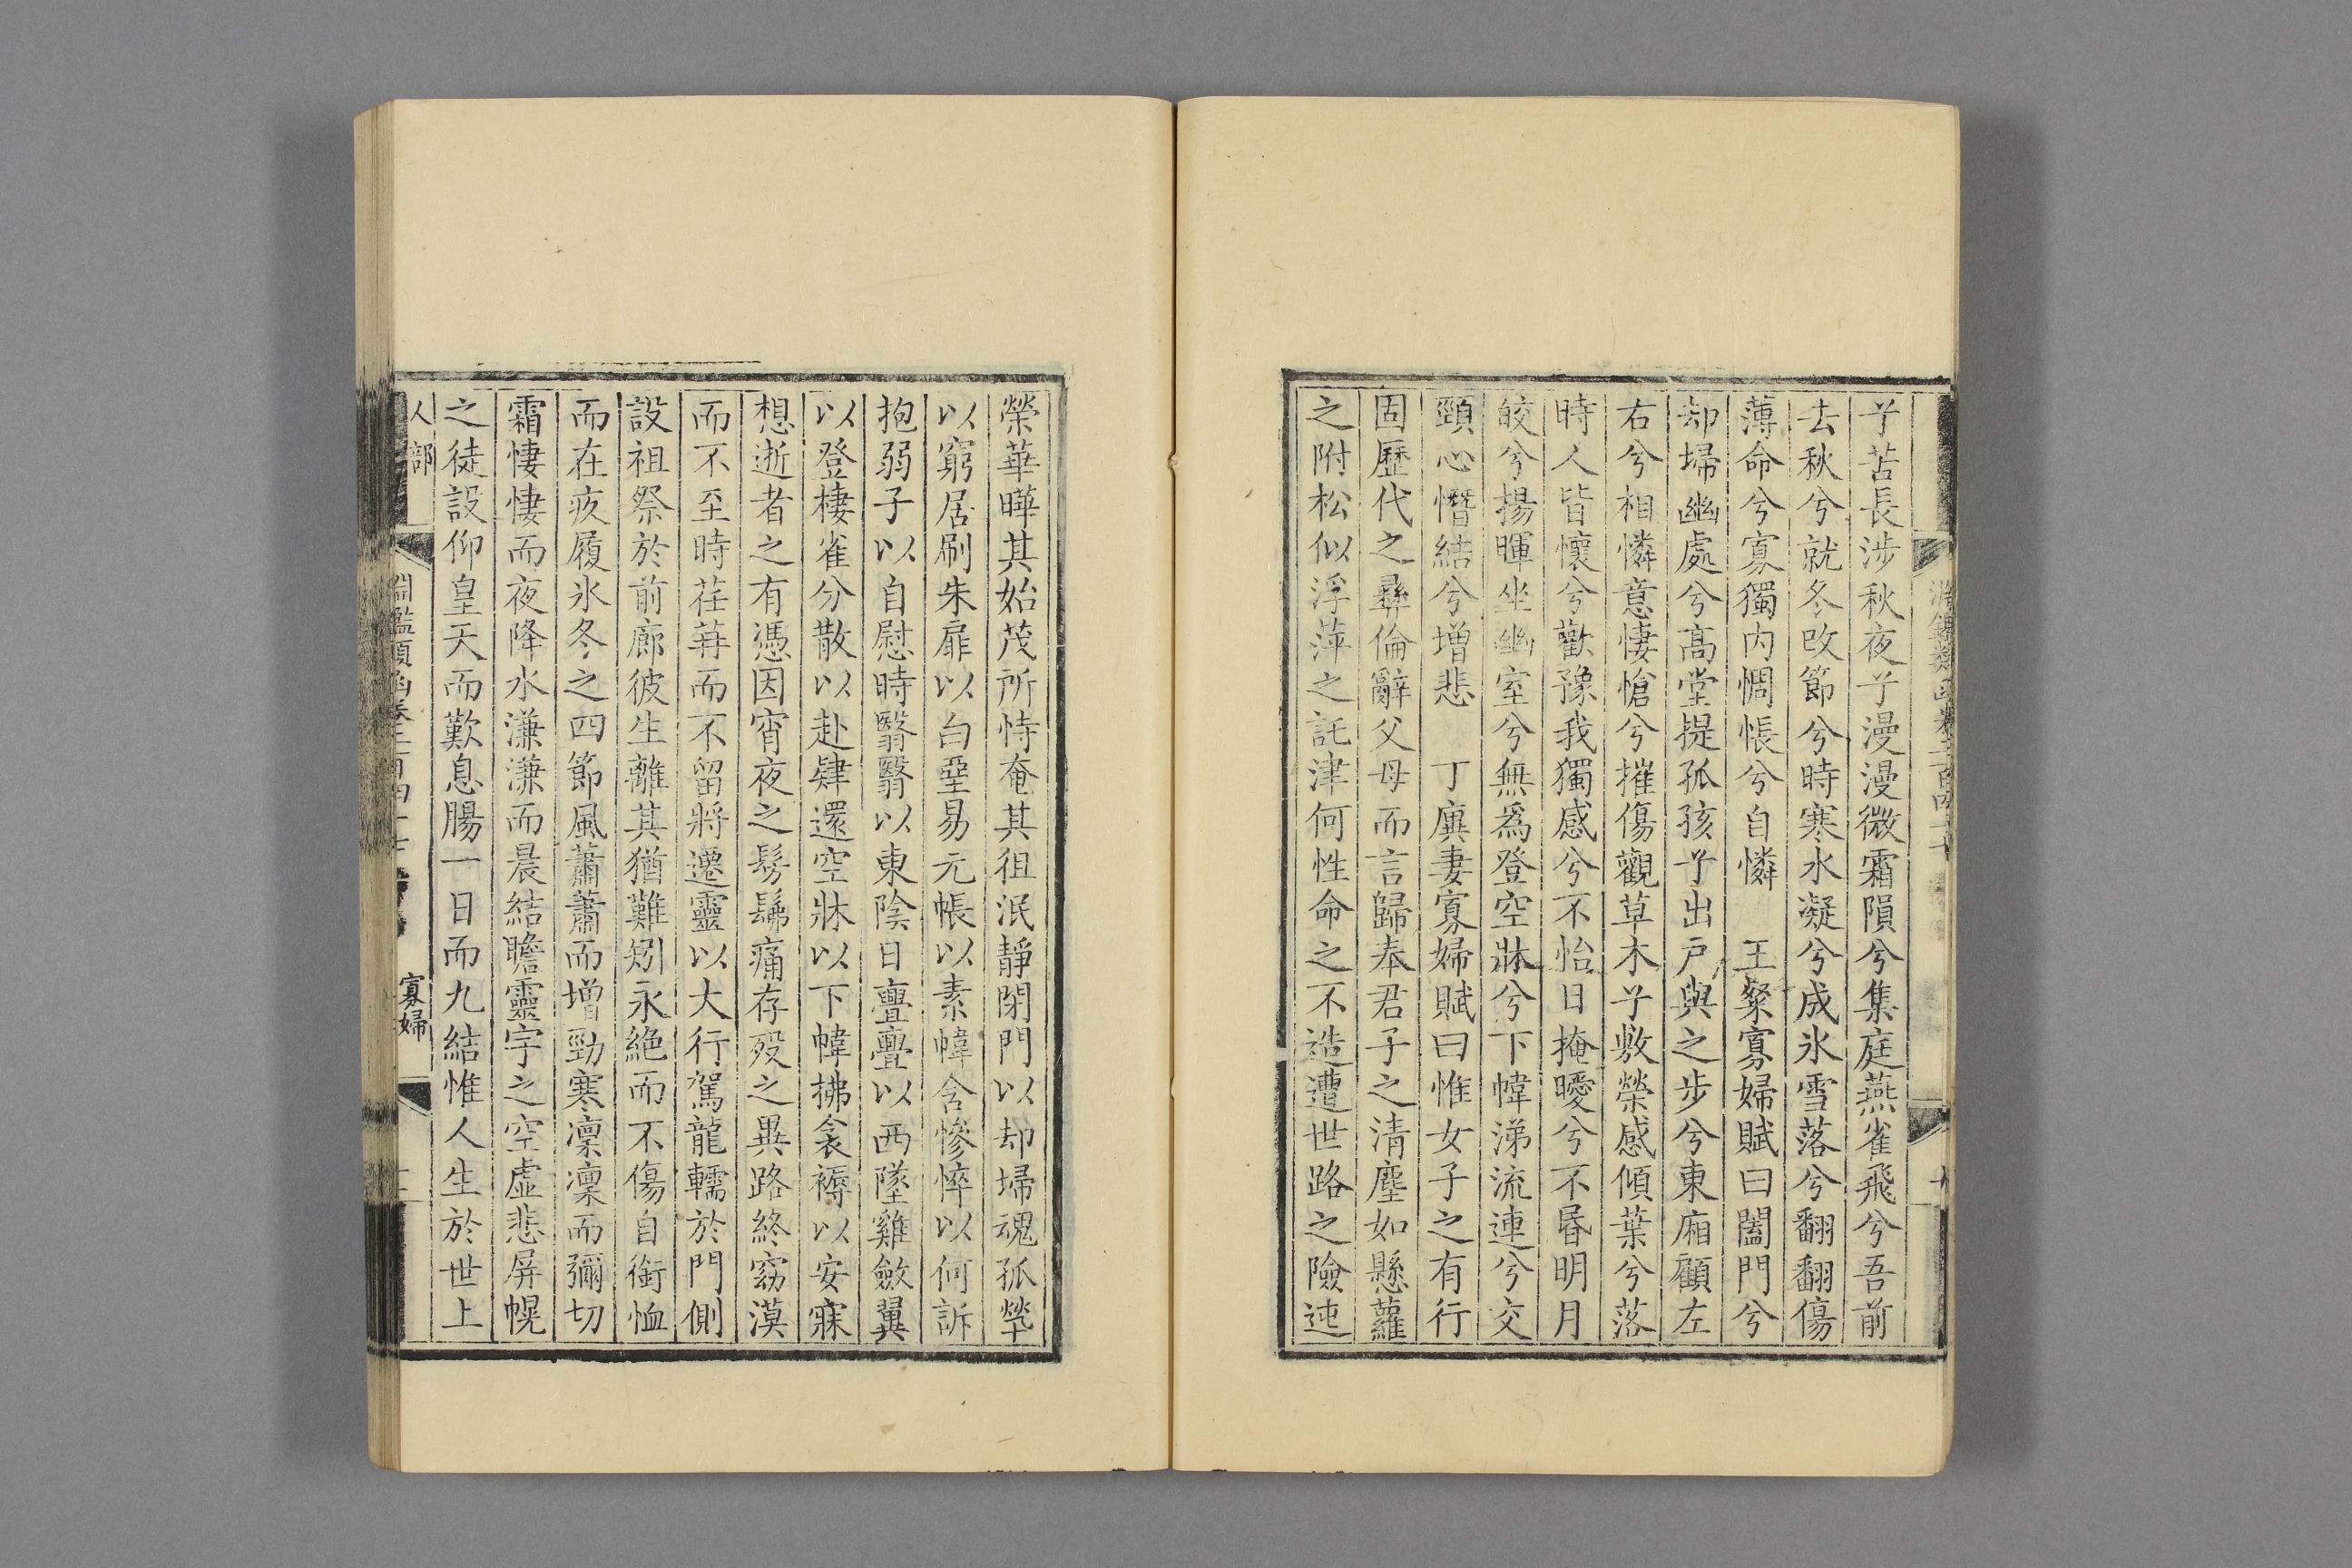 兮苦長涉秋夜兮漫漫微霜隕兮集庭燕雀飛兮吾前
去秋兮就冬改節兮時寒水凝兮成氷雪落兮翻翻傷
薄命兮寡獨内惆悵兮自憐　王粲寡婦賦曰闔門兮
却埽幽處兮高堂提孤孩兮出戶與之步兮東廂顧左
右兮相憐意悽愴兮摧傷觀草木兮敷榮感傾葉兮落
時人皆懷兮歡豫我獨感兮不怡日掩曖兮不昬明月
皎兮揚暉坐幽室兮無爲登空牀兮下幃涕流連兮交
頸心憯結兮增悲　丁廙妻寡婦賦曰惟女子之有行
固歷代之彝倫辭父母而言歸奉君子之清塵如懸蘿
之附松似浮萍之託津何性命之不造遭世路之險迍
榮華曄其始茂所恃奄其徂泯靜閉門以却埽魂孤煢
以窮居刷朱扉以白堊易元帳以素幃含慘悴以何訴
抱弱子以自慰時翳翳以東陰日亹亹以西墜雞斂翼
以登棲雀分散以赴肄還空牀以下幃拂衾褥以安寐
想逝者之有憑因宵夜之髣髴痛存歿之異路終窈漠
而不至時荏苒而不留將遷靈以大行駕龍轜於門側
設祖祭於前廊彼生離其猶難矧永絕而不傷自銜恤
而在疚履氷冬之四節風蕭蕭而增勁寒凛凛而彌切
霜悽悽而夜降水溓溓而晨結瞻靈宇之空虛悲屏幌
之徒設仰皇天而歎息腸一日而九結惟人生於世上
人部
淵鑑類函卷二百四十七
寡婦